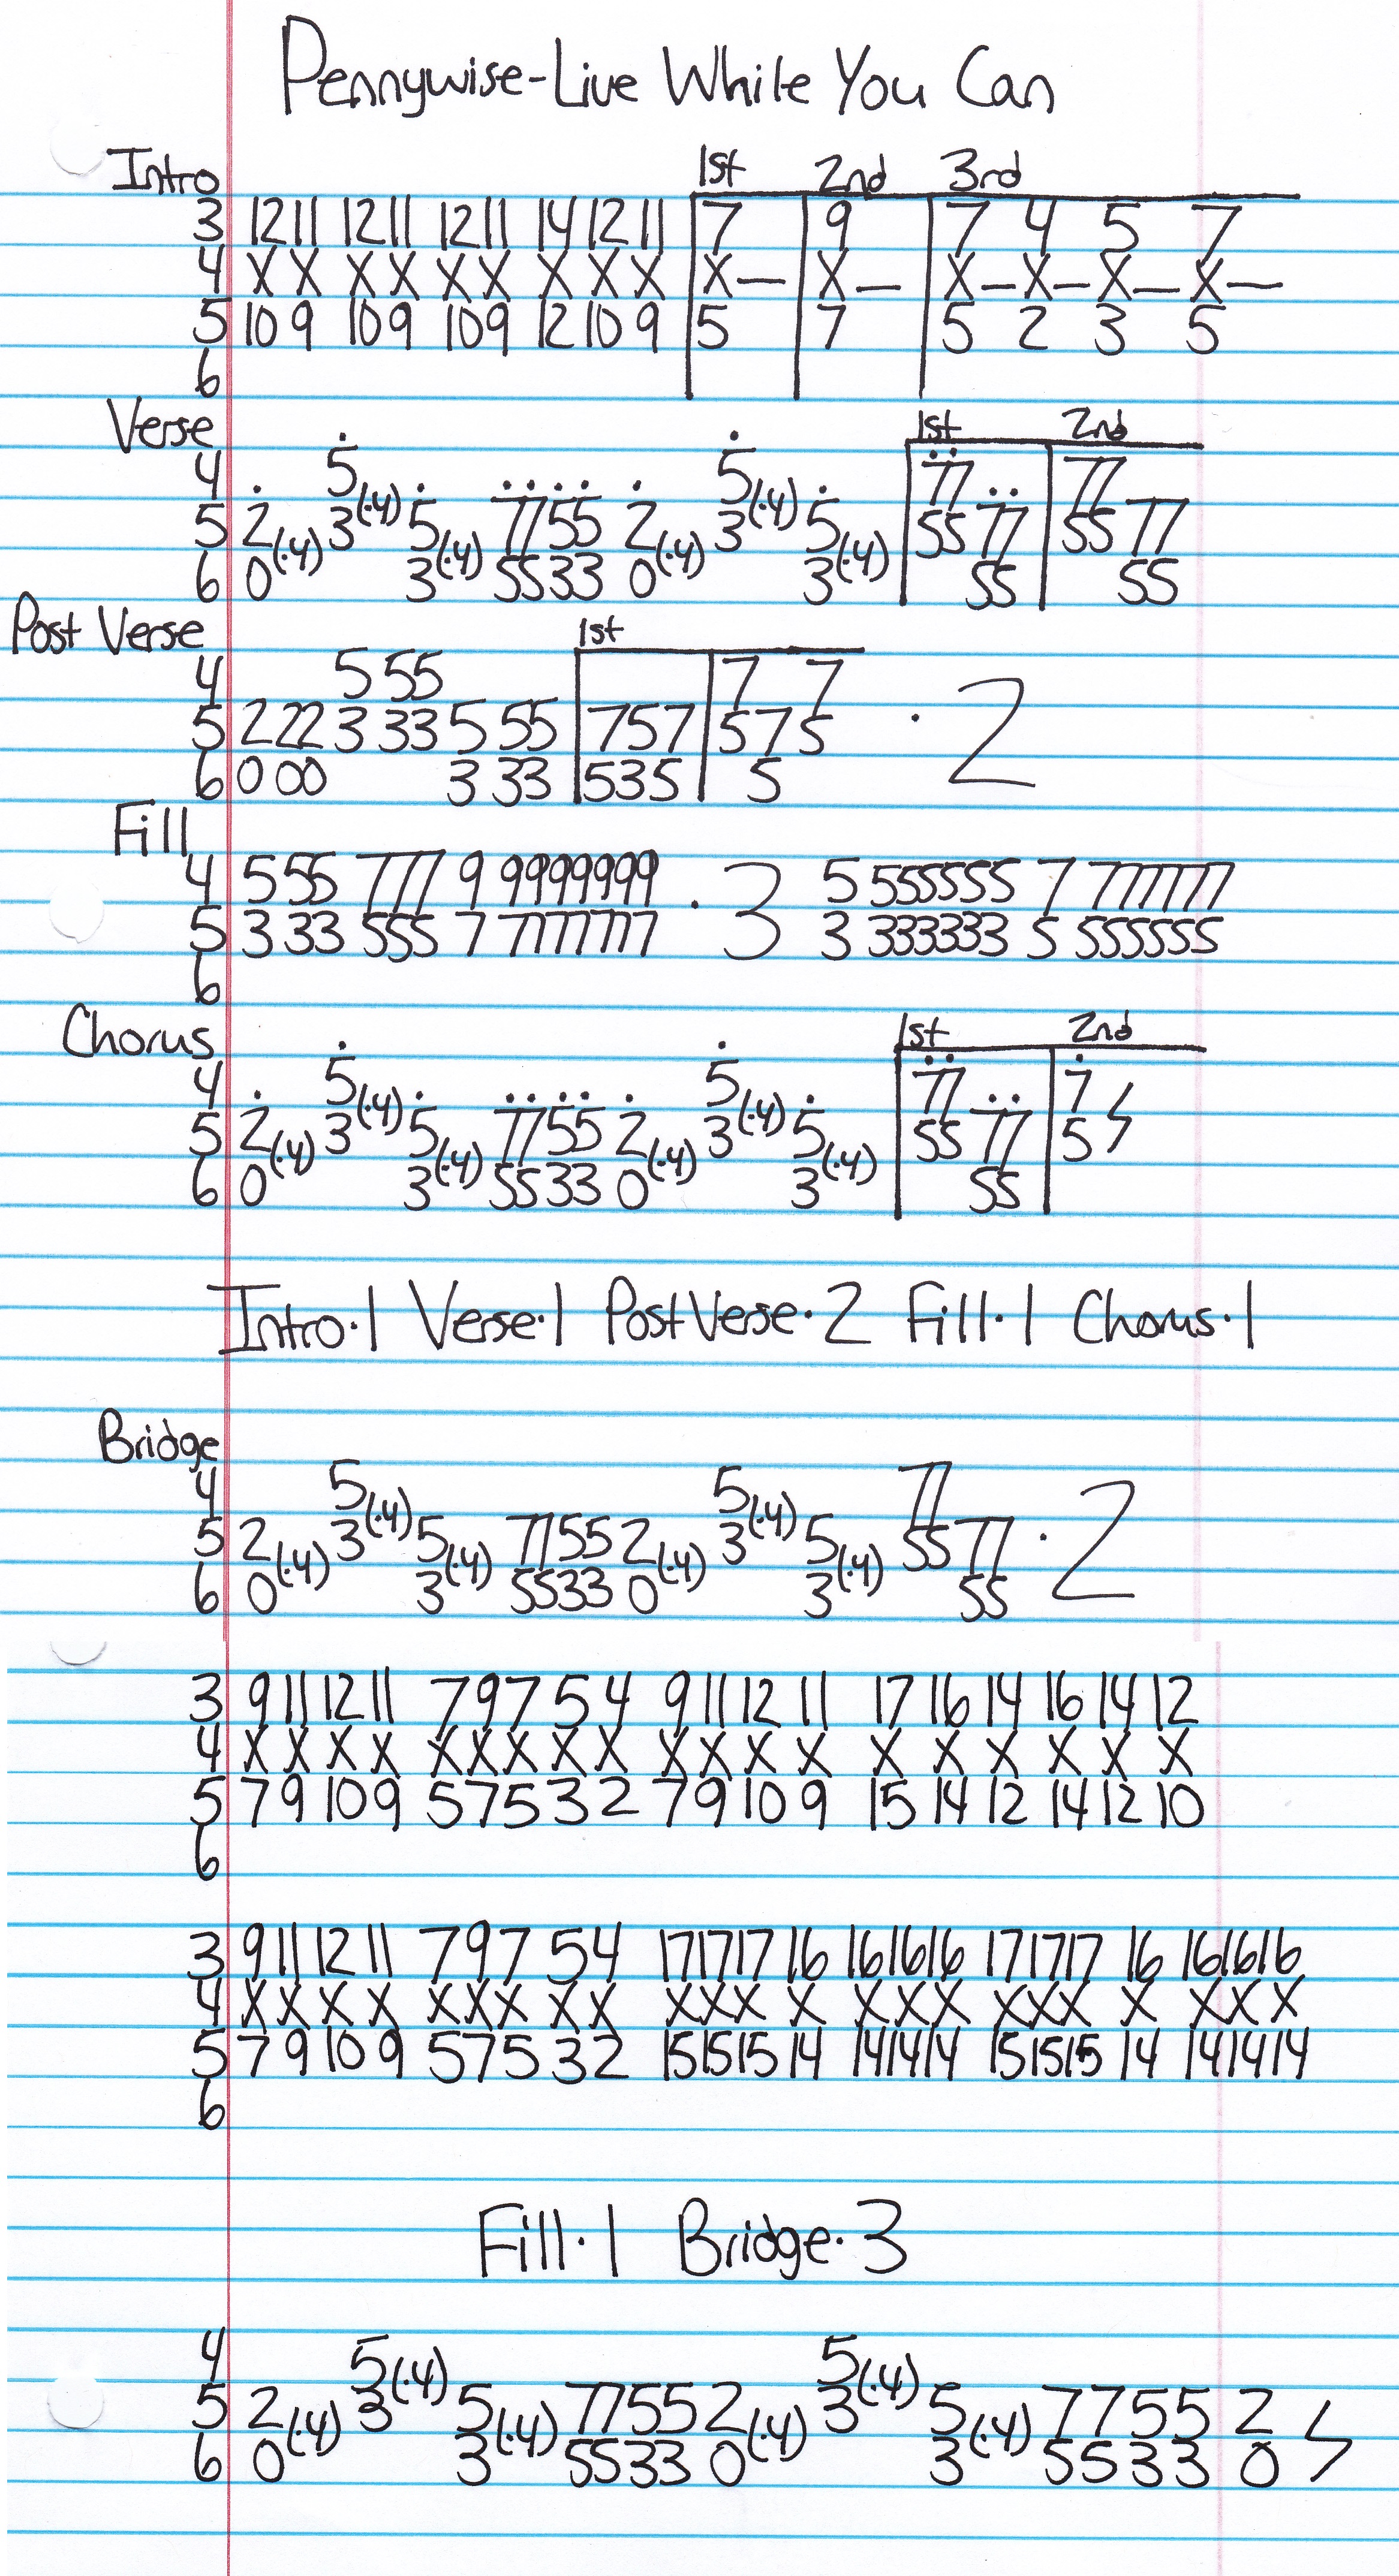 Pennywise-Live While You Can
Intro 1st 2nd 3rd
3 12 11 12 11 12 11 14 12 11 7 9 7 4 5 7
4 X X X X X X X X X X— X— X—X—X—X—
5 10 9 10 9 10 9 12 10 9 5 7 5 2 3 5
6
Verse 1st 2nd
4 5(·4) 5(·4) 77 77
5 2(·4) 3 5(·4) 7755 2(·4) 3 5(·4) 55 77 55 77
6 0 3 5533 0 3 55 55
Post Verse 1st
4 5 55 7 7
5 2 22 3 33 5 55 757 575 · 2
6 0 00 3 33 535 5
Fill
4 555 777 9 9999999 · 3 5 555555 7 777777
5 333 555 7 7777777 3 333333 5 555555
6
Chorus 1st 2nd
4 5(·4) 5(·4) 77 7
5 2(·4) 3 5(·4) 7755 2(·4) 3 5(·4) 55 77 5
6 0 3 5533 0 3 55
Intro·1 Verse·1 Post Verse·2 Fill·1 Chorus·1
Bridge
4 5(·4) 5(·4) 77
5 2(·4) 3 5(·4) 7755 2(·4) 3 5(·4) 55 77 · 2
6 0 3 5533 0 3 55
3 9 11 12 11 7 9 7 5 4 9 11 12 11 17 16 14 16 14 12
4 X X X X X X X X X X X X X X X X X X X
5 7 9 10 9 5 7 5 3 2 7 9 10 9 15 14 12 14 12 10
6
3 9 11 12 11 7 9 7 5 4 17 17 17 16 16 16 16 17 17 17 16 16 16 16
4 X X X X X X X X X X X X X X X X X X X X X X X
5 7 9 10 9 5 7 5 3 2 15 15 15 14 14 14 14 15 15 15 14 14 14 14
6
Fill·1 Bridge·3
4 5(·4) 5(·4)
5 2(·4) 3 5(·4) 7755 2(·4) 3 5(·4) 7755 2
6 0 3 5533 0 3 5533 0